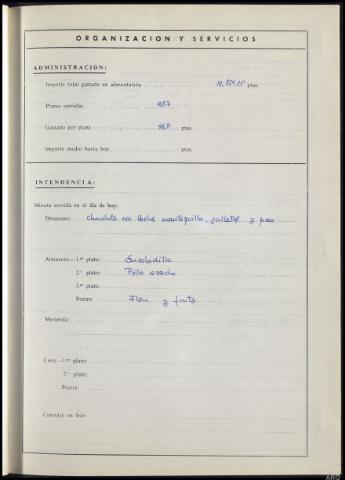 ORGANIZACION Y SERVICIOS
ADMINISTRACION:
Importe total gastado en alimentación ptas.
Platos servidos 237
Gastado por plaza ptas.
Importe medio hasta hoy ptas.
INTENDENCIA:
Minuta servida en el día de hoy:
Desayuno: chocolate con leche mantequilla, galletas y pan
Almuerzo.—1.er plato: Ensaladilla
2.º plato: Pollo asado
3.er plato:
Postre: Flan y fruta
Merienda:
Cena.—1.er plato:
2.º plato:
Postre:
Comidas en frío:
ARO